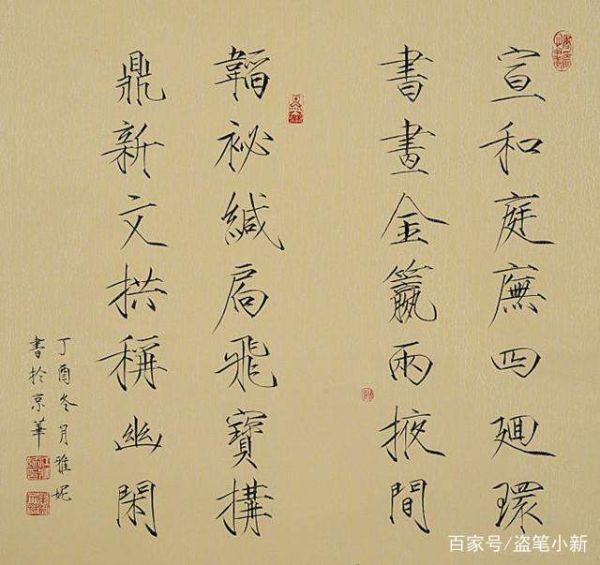 宣和庭廡四廻環
書畫金籯兩掖間
韜祕緘扃飛寶搆
鼎新文拱稱幽閑
丁酉冬月雅妮
書於京華
百家号/盗笔小新